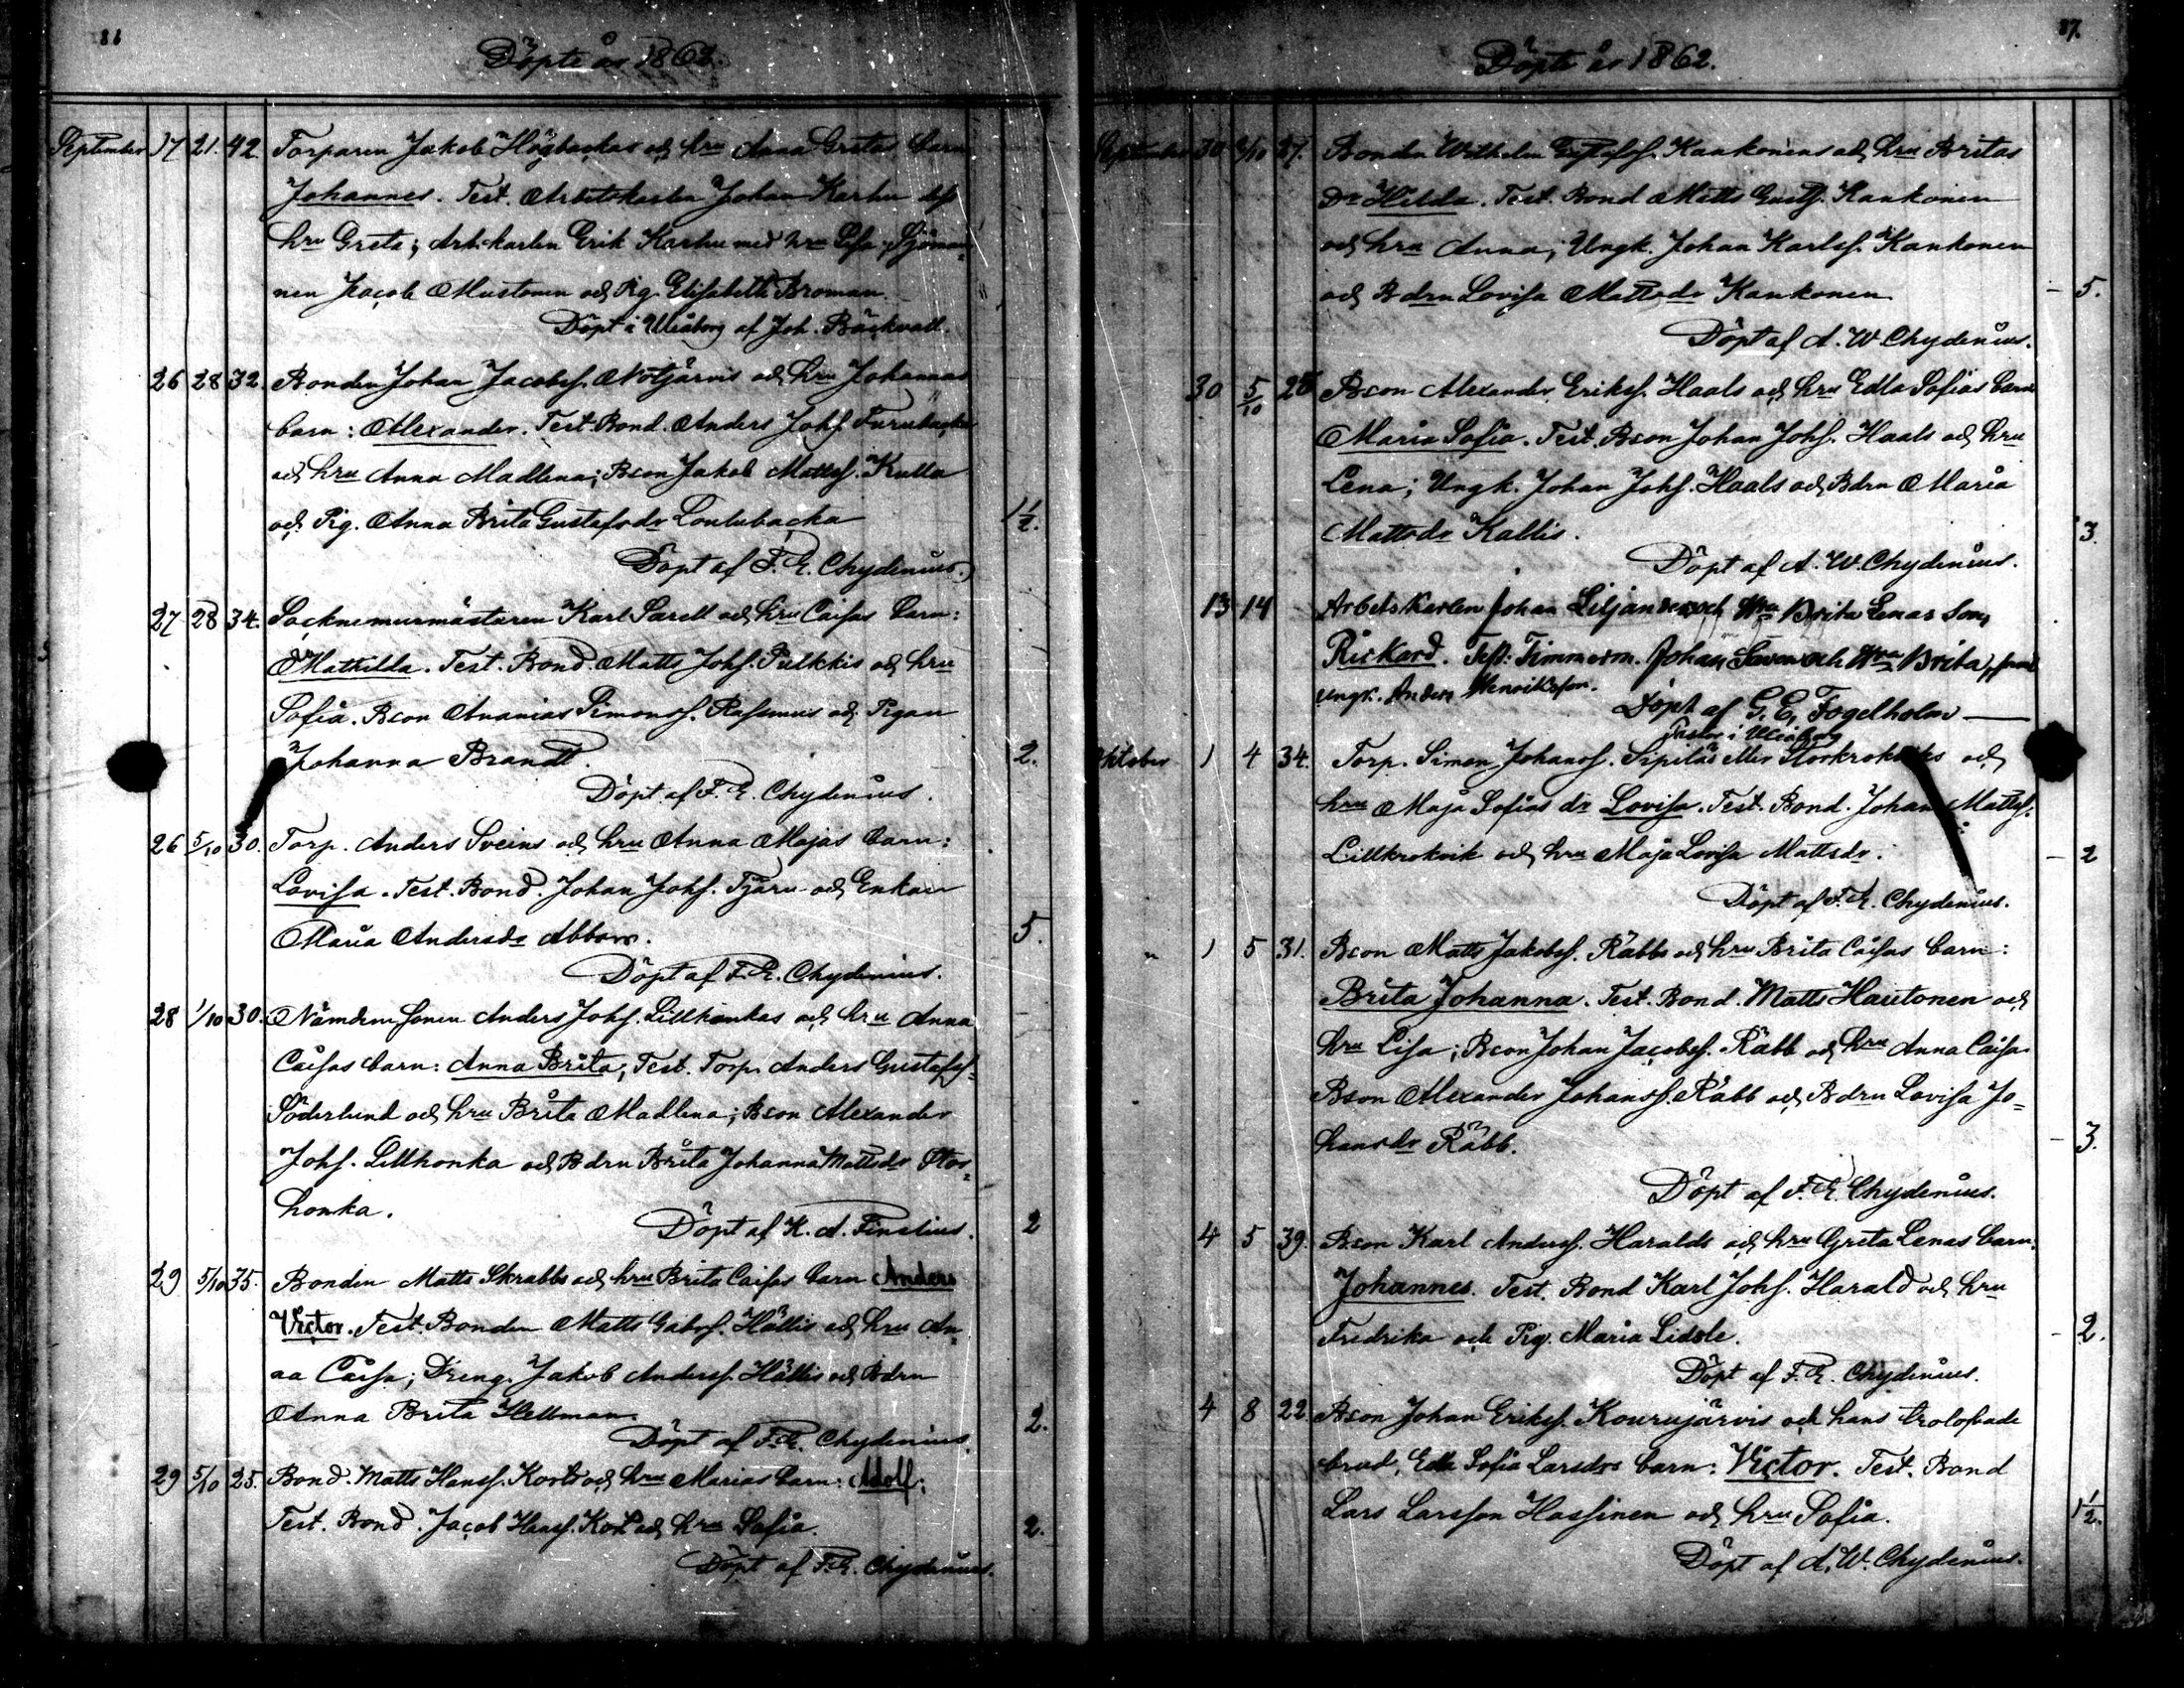 86
Döpte år 1862.
September 17 21. 42. Torparen Jakob Högbackas och hru Anna Gretas barn
Johannes. Test. Arbetskarlen Johan Karhu
hru Greta; Arb. karlen Erik Karhu med hru Lisa; Sjöman
nen Jacob Mustonen och Pig. Elisabeth Broman.
Döpt i Uleåborg af Joh. Bäckvall.
26 28 32. Bonden Johan Jacobss. Nötjärvis och hru Johannas
barn: Alexander. Test. Bond. Anders Johss. Furubacka
och hru Anna Madlena; Bson Jakob Mattss. Kulla
och Pig. Anna Brita Gustafsdr Loulubacka 1½.
Döpt af F. E. Chydenius.
27 28 34. Socknemurmästaren Karl Sarell och hru Caisas barn:
Mathilda. Test. Bond. Matts Johss. Pulkkis och hru
Sofia. Bson Ananias Simonss. Rasmus och Pigan
Johanna Brandt. 2.
Döpt af F. E. Chydenius.
26 5/10 30. Torp. Anders Sveins och hru Anna Majas barn:
Lovisa. Test. Bond. Johan Johss. Tjäru och Enkan
Maria Andersdr Abbors. 5.
Döpt af F. E. Chydenius.
28 1/10 30. Nämdem. sonen Anders Johss. Lillhonkas och hru Anna
Caisas barn: Anna Brita; Test. Torp. Anders Gustafss.
Söderlund och hru Brita Madlena; Bson Alexander
Johss. Lillhonka och Bdrn Brita Johanna Mattsdr Stor=
honka.
Döpt af K. A. Finelius. 2
29 5/10 35. Bonden Matts Skrabbs och hru Brita Caisas barn Anders
Victor. Test. Bonden Matts Gabrss. Hällis och hru An=
na Caisa; Dreng. Jakob Anderss. Hällis och Bdrn
Anna Brita Hellman. 2.
Döpt af F. E. Chydenius.
29 5/10 25. Bond. Matts Hanss. Korts och hru Marias barn: Adolf;
Test. Bond. Jacob Hanss. Kort och hru Sofia. 2.
Döpt af F. E. Chydenius.
87.
Döpte år 1862.
September 30 2/10 37. Bonden Wilhelm Gustafss. Kankonens och hru Britas
Dr Hilda. Test. Bond Matts Gustfs. Kankonen
och hru Anna; Ungk. Johan Karlss. Kankonen
och Bdrn Lovisa Mattsdr Kankonen – 5.
Döpt af A. W. Chydenius.
30 5/10 28 Bson Alexander Erikss. Haals och hru Edla Sofias barn
Maria Sofia. Test. Bson Johan Johss. Haals och hru
Lena; Ungk. Johan Johss. Haals och Bdrn Maria
Mattsdr Kallis. 3.
Döpt af A. W. Chydenius.
13 14 Arbetskarlen Johan Liljander och Hru Brita Lenas Son,
Rickard. Test: Timmerm. Johan Saven och Hru Brita, samt
ungk. Anders Henriksson.
Döpt af G. E. Fogelholm
Pastor i Uleåborg
Oktober 1 4 34. Torp. Simon Johanss. Sipiläs eller Storkrokviks och
hru Maja Sofias dr Lovisa. Test. Bond. Johan Mattss.
Lillkrokvik och hru Maja Lovisa Mattsdr. – 2
Döpt af F. E. Chydenius.
" 1 5 31. Bson Matts Jakobss. Räbbs och hru Brita Caisas barn:
Brita Johanna. Test. Bond. Matts Hautonen och
hru Lisa; Bson Johan Jacobss. Räbb och hru Anna Caisa
Bson Alexander Johanss. Räbb och Bdrn Lovisa Jo=
hansdr Räbb. – 3.
Döpt af F. E. Chydenius.
4 5 39. Bson Karl Anderss. Haralds och hru Greta Lenas barn:
Johannes. Test. Bond Karl Johss. Harald och hru
Fredrika och Pig. Maria Lidsle. – 2.
Döpt af F. E. Chydenius.
4 8 22. Bson Johan Erikss. Kourujärvis och hans trolofvade
brud, Edla Sofia Larsdrs barn: Victor. Test. Bond
Lars Larsson Hassinen och hru Sofia. 1½.
Döpt af A. W. Chydenius.